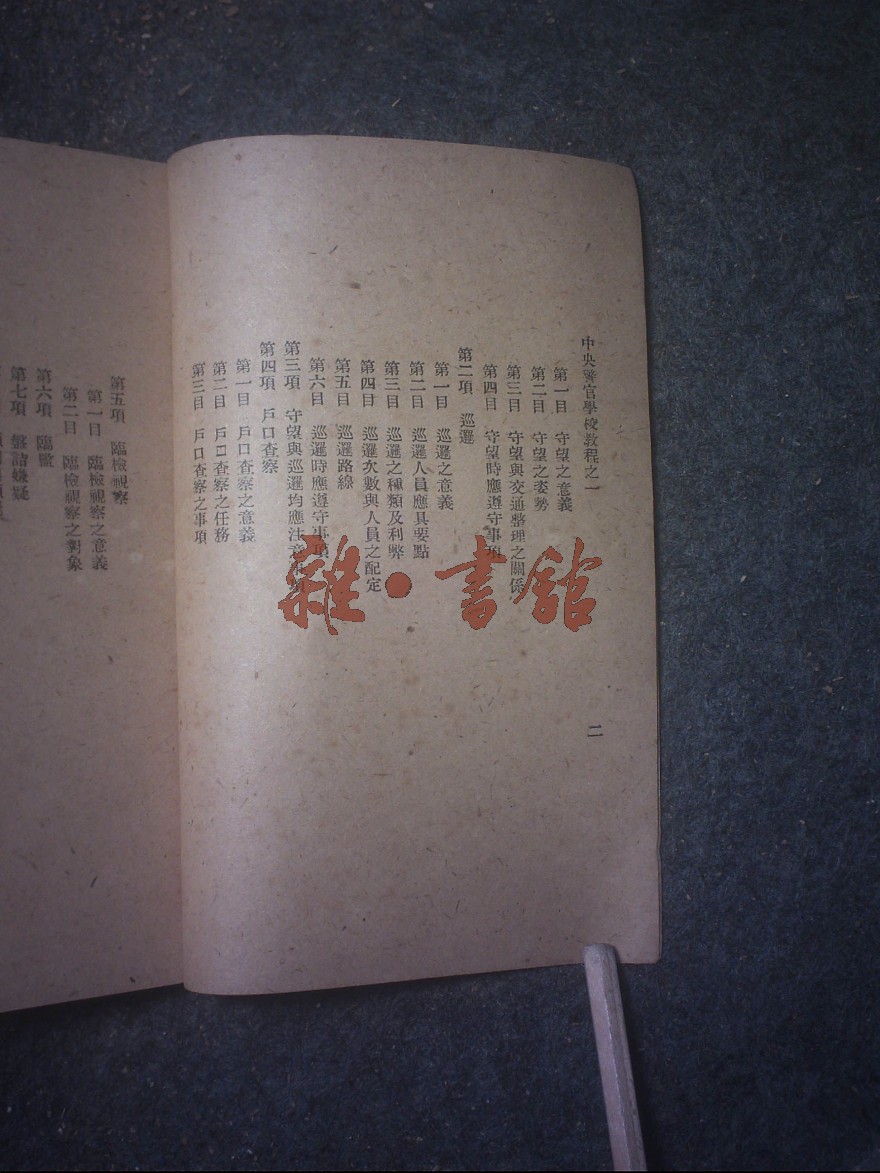 中央警官學校教程之一
第一目　守望之意義
第二目　守望之姿勢
第三目　守望與交通整理之關係
第四目　守望時應遵守事項
第二項　巡邏
第一目　巡邏之意義
第二目　巡邏人員應具要點
第三目　巡邏之種類及利弊
第四目　巡邏次數與人員之配定
第五目　巡邏路線
第六目　巡邏時應遵守事項
第三項　守望與巡邏均應注意事項
第四項　戶口查察
第一目　戶口查察之意義
第二目　戶口查察之任務
第三目　戶口查察之事項
二
第五項　臨檢視察
第一目　臨檢視察之意義
第二目　臨檢視察之對象
第六項　臨監
第七項　盤詰嫌疑
雜·書館